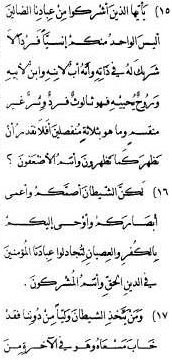 (١٥) يٰأيها الذين أشركوا من عبادنا الضالين
أليس الواحد منكم إنسيًّا فردًا لا
شريك له في ذاته وأنه أب لابنه وابن لأبيه
وزوج يحييه فهو ثالوث فرد وثر غير
منقسم وما هو بثلاثة منفصلين أفلا نقدر أن
نظهر كما تظهرون وأنتم الأضعفون ؟
(١٦) لكن الشيطان أصمكم وأعمى
أبصاركم وأوحى إليكم
بالكفر والعصيان لتجادلوا عبادنا المؤمنين
في الدين الحق وأنتم المشركون .
(١٧) ومن يتخذ الشيطان وليًّا من دوننا فقد
خاب مسعاه وهو في الآخرة من